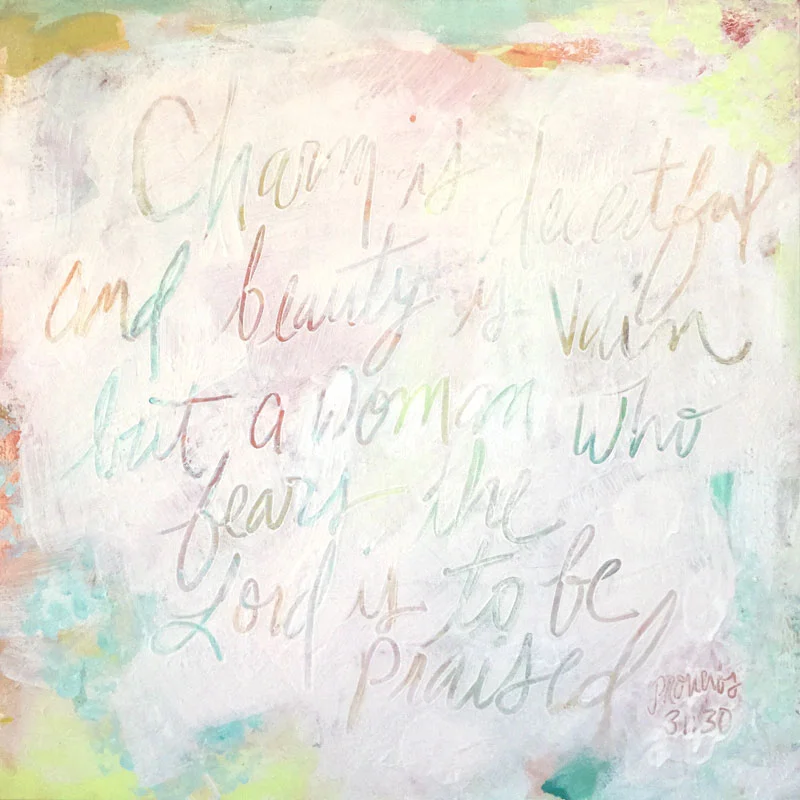 Charm is deceitful
and beauty is vain
but a woman who
fears the
Lord is to be
praised
Proverbs
31:30